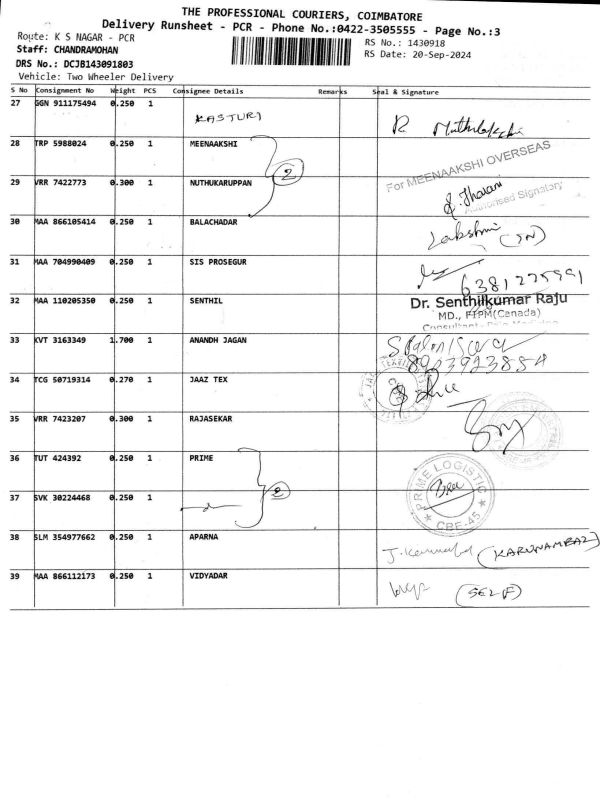 THE PROFESSIONAL COURIERS, COIMBATORE
Delivery Runsheet - PCR - Phone No.:0422-3505555 - Page No.:3
Route: K S NAGAR - PCR
RS No.: 1430918
Staff: CHANDRAMOHAN
RS Date: 20-Sep-2024
DRS No.: DCJB143091803
Vehicle: Two Wheeler Delivery
S No Consignment No Weight PCS Consignee Details Remarks Seal & Signature
27 GGN 911175494 0.250 1 KASTURI R Muthulakshmi
28 TRP 5988024 0.250 1 MEENAAKSHI For MEENAAKSHI OVERSEAS
2
29 VRR 7422773 0.300 1 NUTHUKARUPPAN Authorised Signatory
30 MAA 866105414 0.250 1 BALACHADAR Lakshmi
31 MAA 704990409 0.250 1 SIS PROSEGUR
32 MAA 110205350 0.250 1 SENTHIL Dr. Senthilkumar Raju
MD., FIPM(Canada)
33 KVT 3163349 1.700 1 ANANDH JAGAN
34 TCG 50719314 0.270 1 JAAZ TEX
35 VRR 7423207 0.300 1 RAJASEKAR
36 TUT 424392 0.250 1 PRIME PRIME LOGISTIC
2
37 SVK 30224468 0.250 1 CBE-45
38 SLM 354977662 0.250 1 APARNA
39 MAA 866112173 0.250 1 VIDYADAR (562-F)